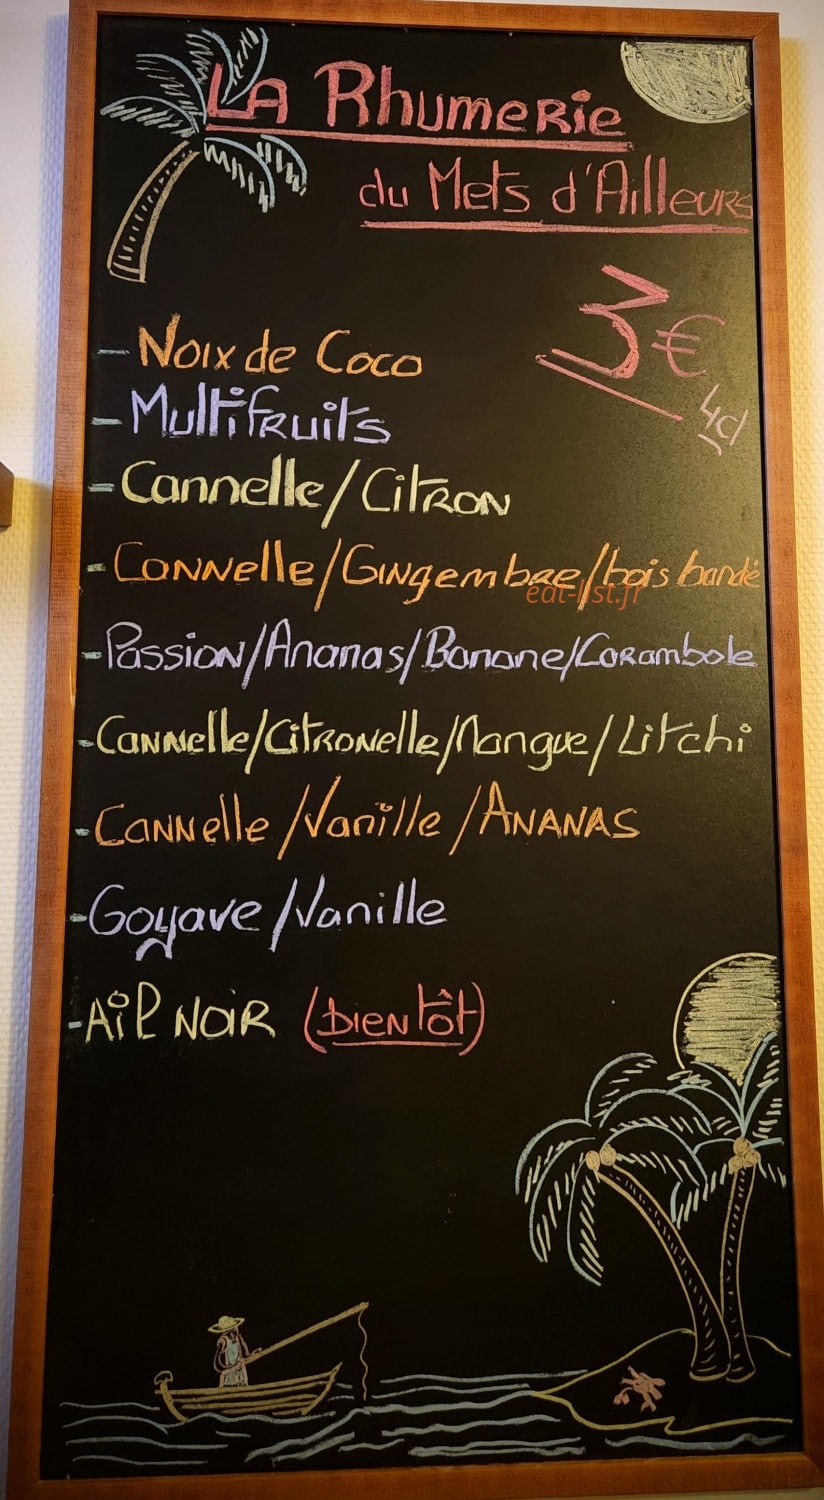 LA Rhumerie
du Mets d'Ailleurs
3€
4cl
- Noix de Coco
- Multifruits
- Cannelle/Citron
- Cannelle/Gingembre/bois bandé
edt-list.fr
- Passion/Ananas/Banane/Carambole
- Cannelle/Citronelle/Mangue/Litchi
- Cannelle/Vanille/Ananas
- Goyave/Vanille
- Ail Noir (bientôt)